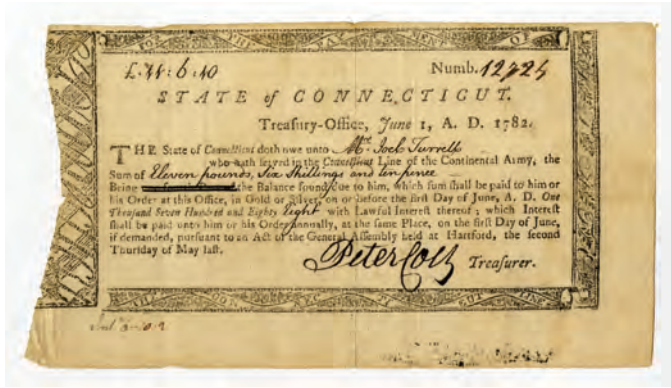 FOR THE PAY MENT OF
£.11:6:10 Numb. 12,324
STATE of CONNECTICUT.
Treasury-Office, June 1, A. D. 1782.
THE State of Connecticut doth owe unto Mr Joel Turrell
who hath served in the Connecticut Line of the Continental Army, the
Sum of Eleven pounds, Six Shillings and ten pence
Being the Balance found due to him, which sum shall be paid to him or
his Order at this Office, in Gold or Silver, on or before the first Day of June, A. D. One
Thousand Seven Hundred and Eighty Eight with Lawful Interest thereof; which Interest
shall be paid unto him or his Order annually, at the same Place, on the first Day of June,
if demanded, pursuant to an Act of the General Assembly held at Hartford, the second
Thursday of May last.
Peter Colt Treasurer.